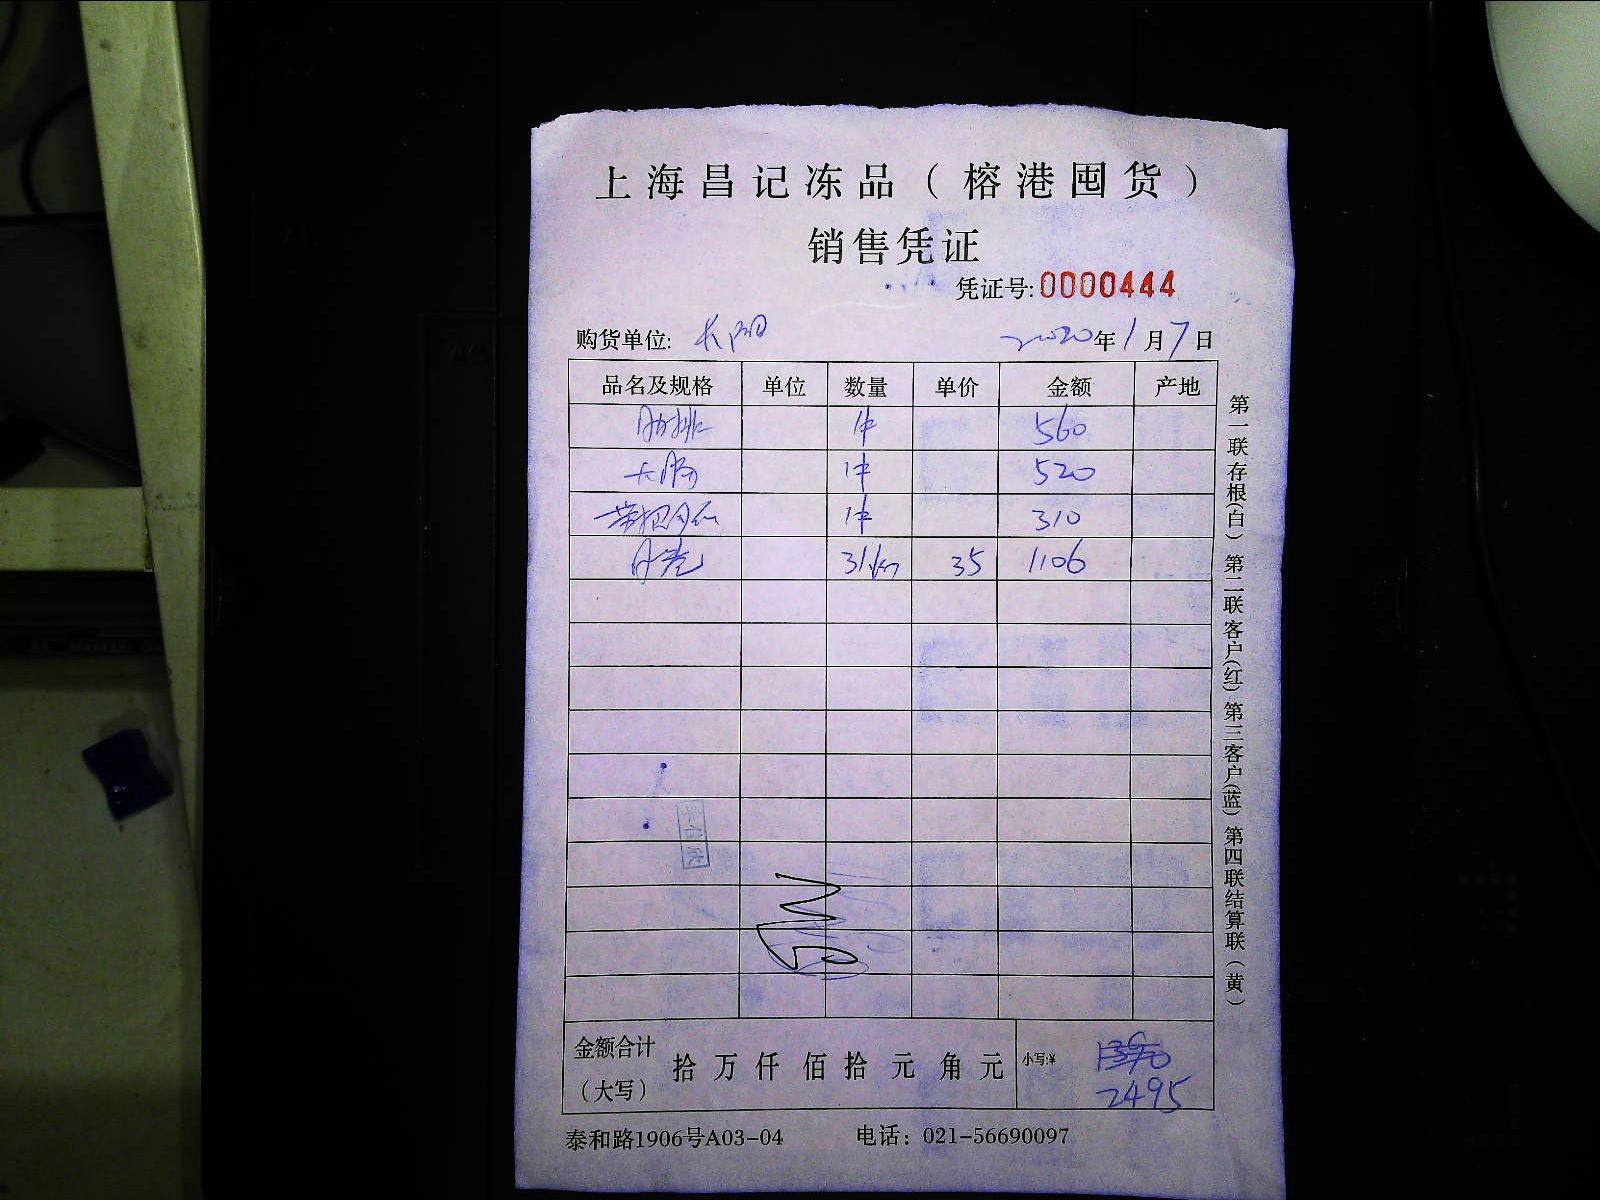 上海昌记冻品（榕港囤货）
销售凭证
凭证号:0000444
购货单位: 长阳 2020年1月7日
品名及规格 单位 数量 单价 金额 产地
肋排 1件 560
大肠 1件 520
1件 310
35 1106
金额合计（大写） 拾 万 仟 佰 拾 元 角 元 小写:¥
2495
泰和路1906号A03-04 电话：021-56690097
第一联存根(白) 第二联客户(红) 第三客户(蓝) 第四联结算联(黄)